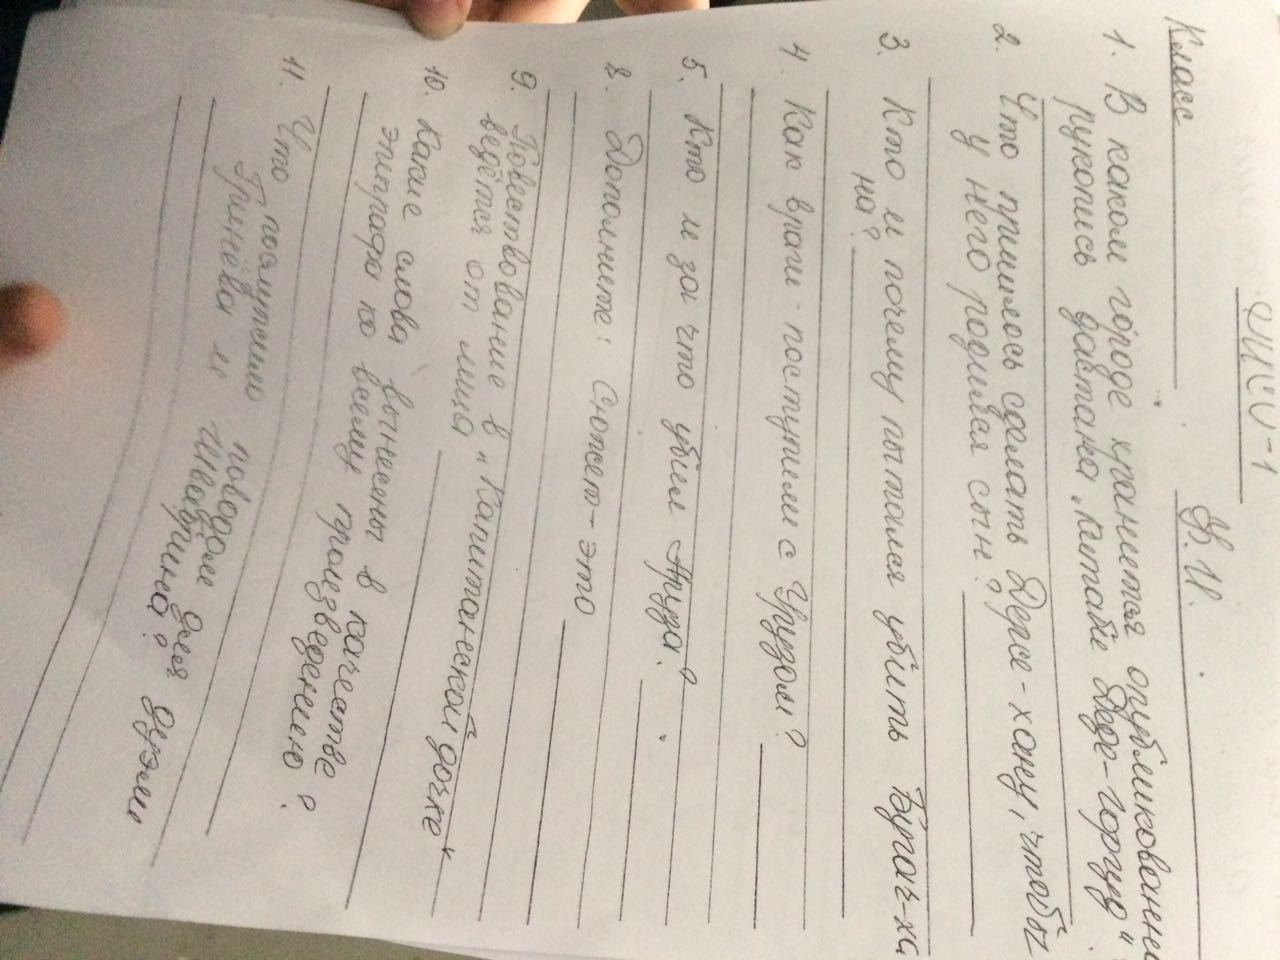 Ф.И.
Класс
1. В каком городе хранится опубликованная
рукопись дастана „Китаби Деде-Горгуд".
2. Что пришлось сделать Дерсе-хану, чтобы
у него родился сын?
3. Кто и почему пытался убить Бугач-ха
на?
4. Как враги поступили с Урузом?
5. Кто и за что убил Аруза?
8. Дополните: Сюжет - это
9. Повествование в „Капитанской дочке"
ведётся от лица
10. Какие слова вынесены в качестве
эпиграфа ко всему произведению?
11. Что послужило поводом для дуэли
Гринёва и Швабрина?